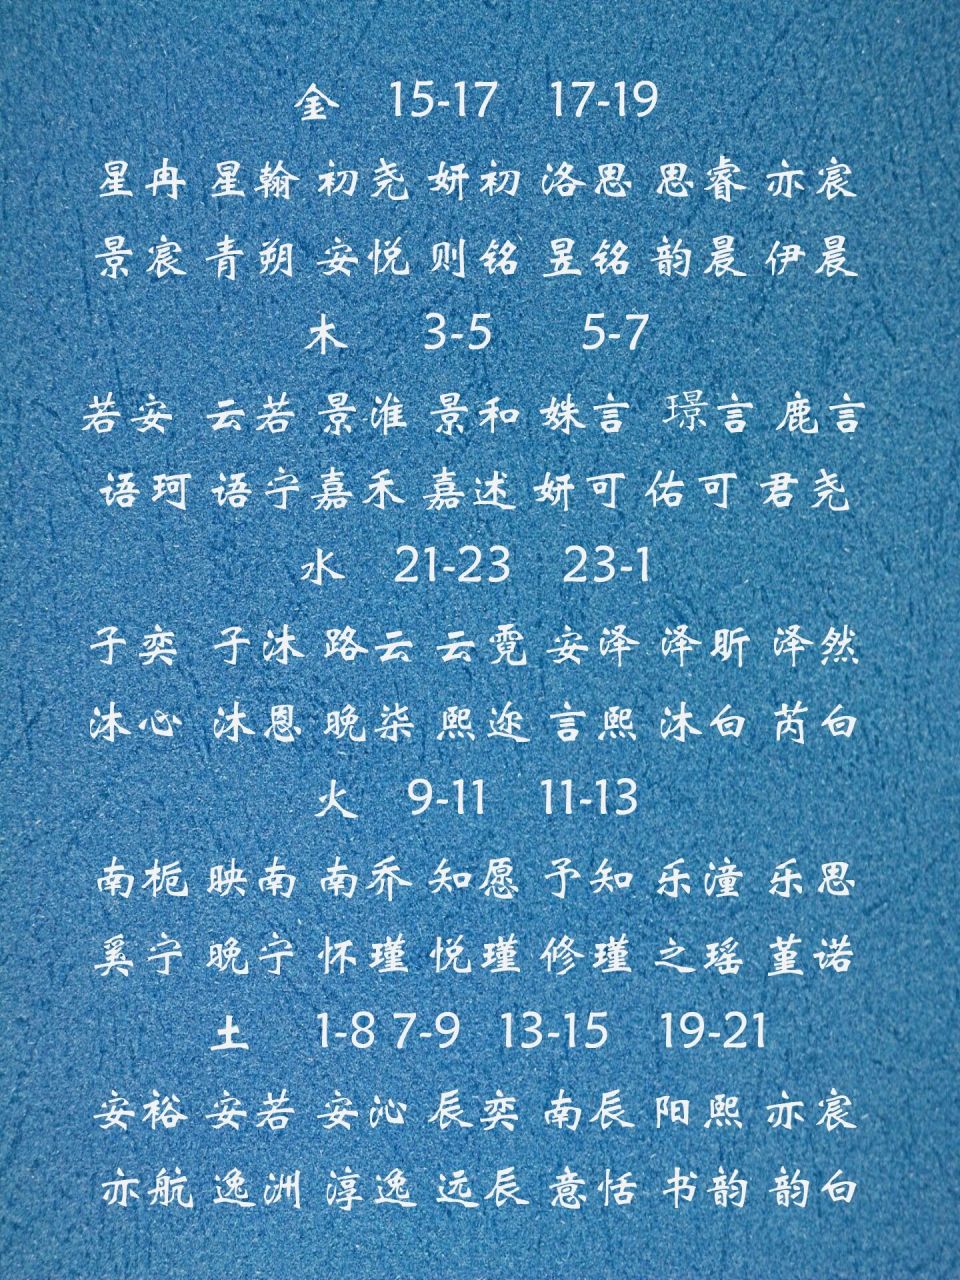 金 15-17 17-19
星冉 星翰 初尧 妍初 洛思 思睿 亦宸
景宸 青朔 安悦 则铭 昱铭 韵晨 伊晨
木 3-5 5-7
若安 云若 景淮 景和 姝言 璟言 鹿言
语珂 语宁 嘉禾 嘉述 妍可 佑可 君尧
水 21-23 23-1
子奕 子沐 路云 云霓 安泽 泽昕 泽然
沐心 沐恩 晚柒 熙迩 言熙 沐白 芮白
火 9-11 11-13
南栀 映南 南乔 知愿 予知 乐潼 乐思
奚宁 晚宁 怀瑾 悦瑾 修瑾 之瑶 堇诺
土 1-8 7-9 13-15 19-21
安裕 安若 安沁 辰奕 南辰 阳熙 亦宸
亦航 逸洲 淳逸 远辰 意恬 书韵 韵白